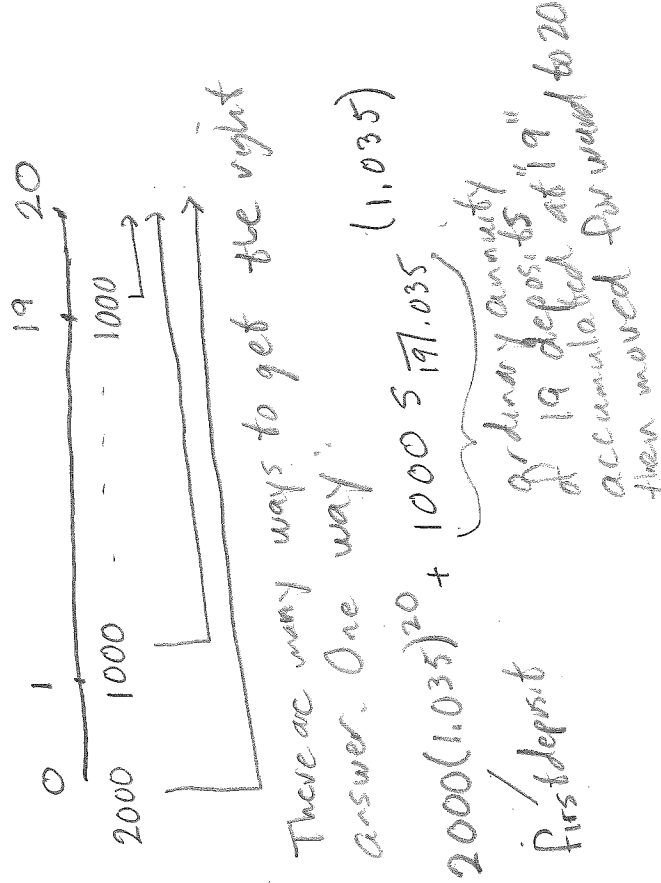 0 1 19 20
2000 1000 - - - - 1000
There are many ways to get the right
answer. One way:
2000(1.035)^20 + 1000 s 19|.035 (1.035)
first deposit
ordinary annuity
of 19 deposits
accumulated at "19"
then moved forward to 20